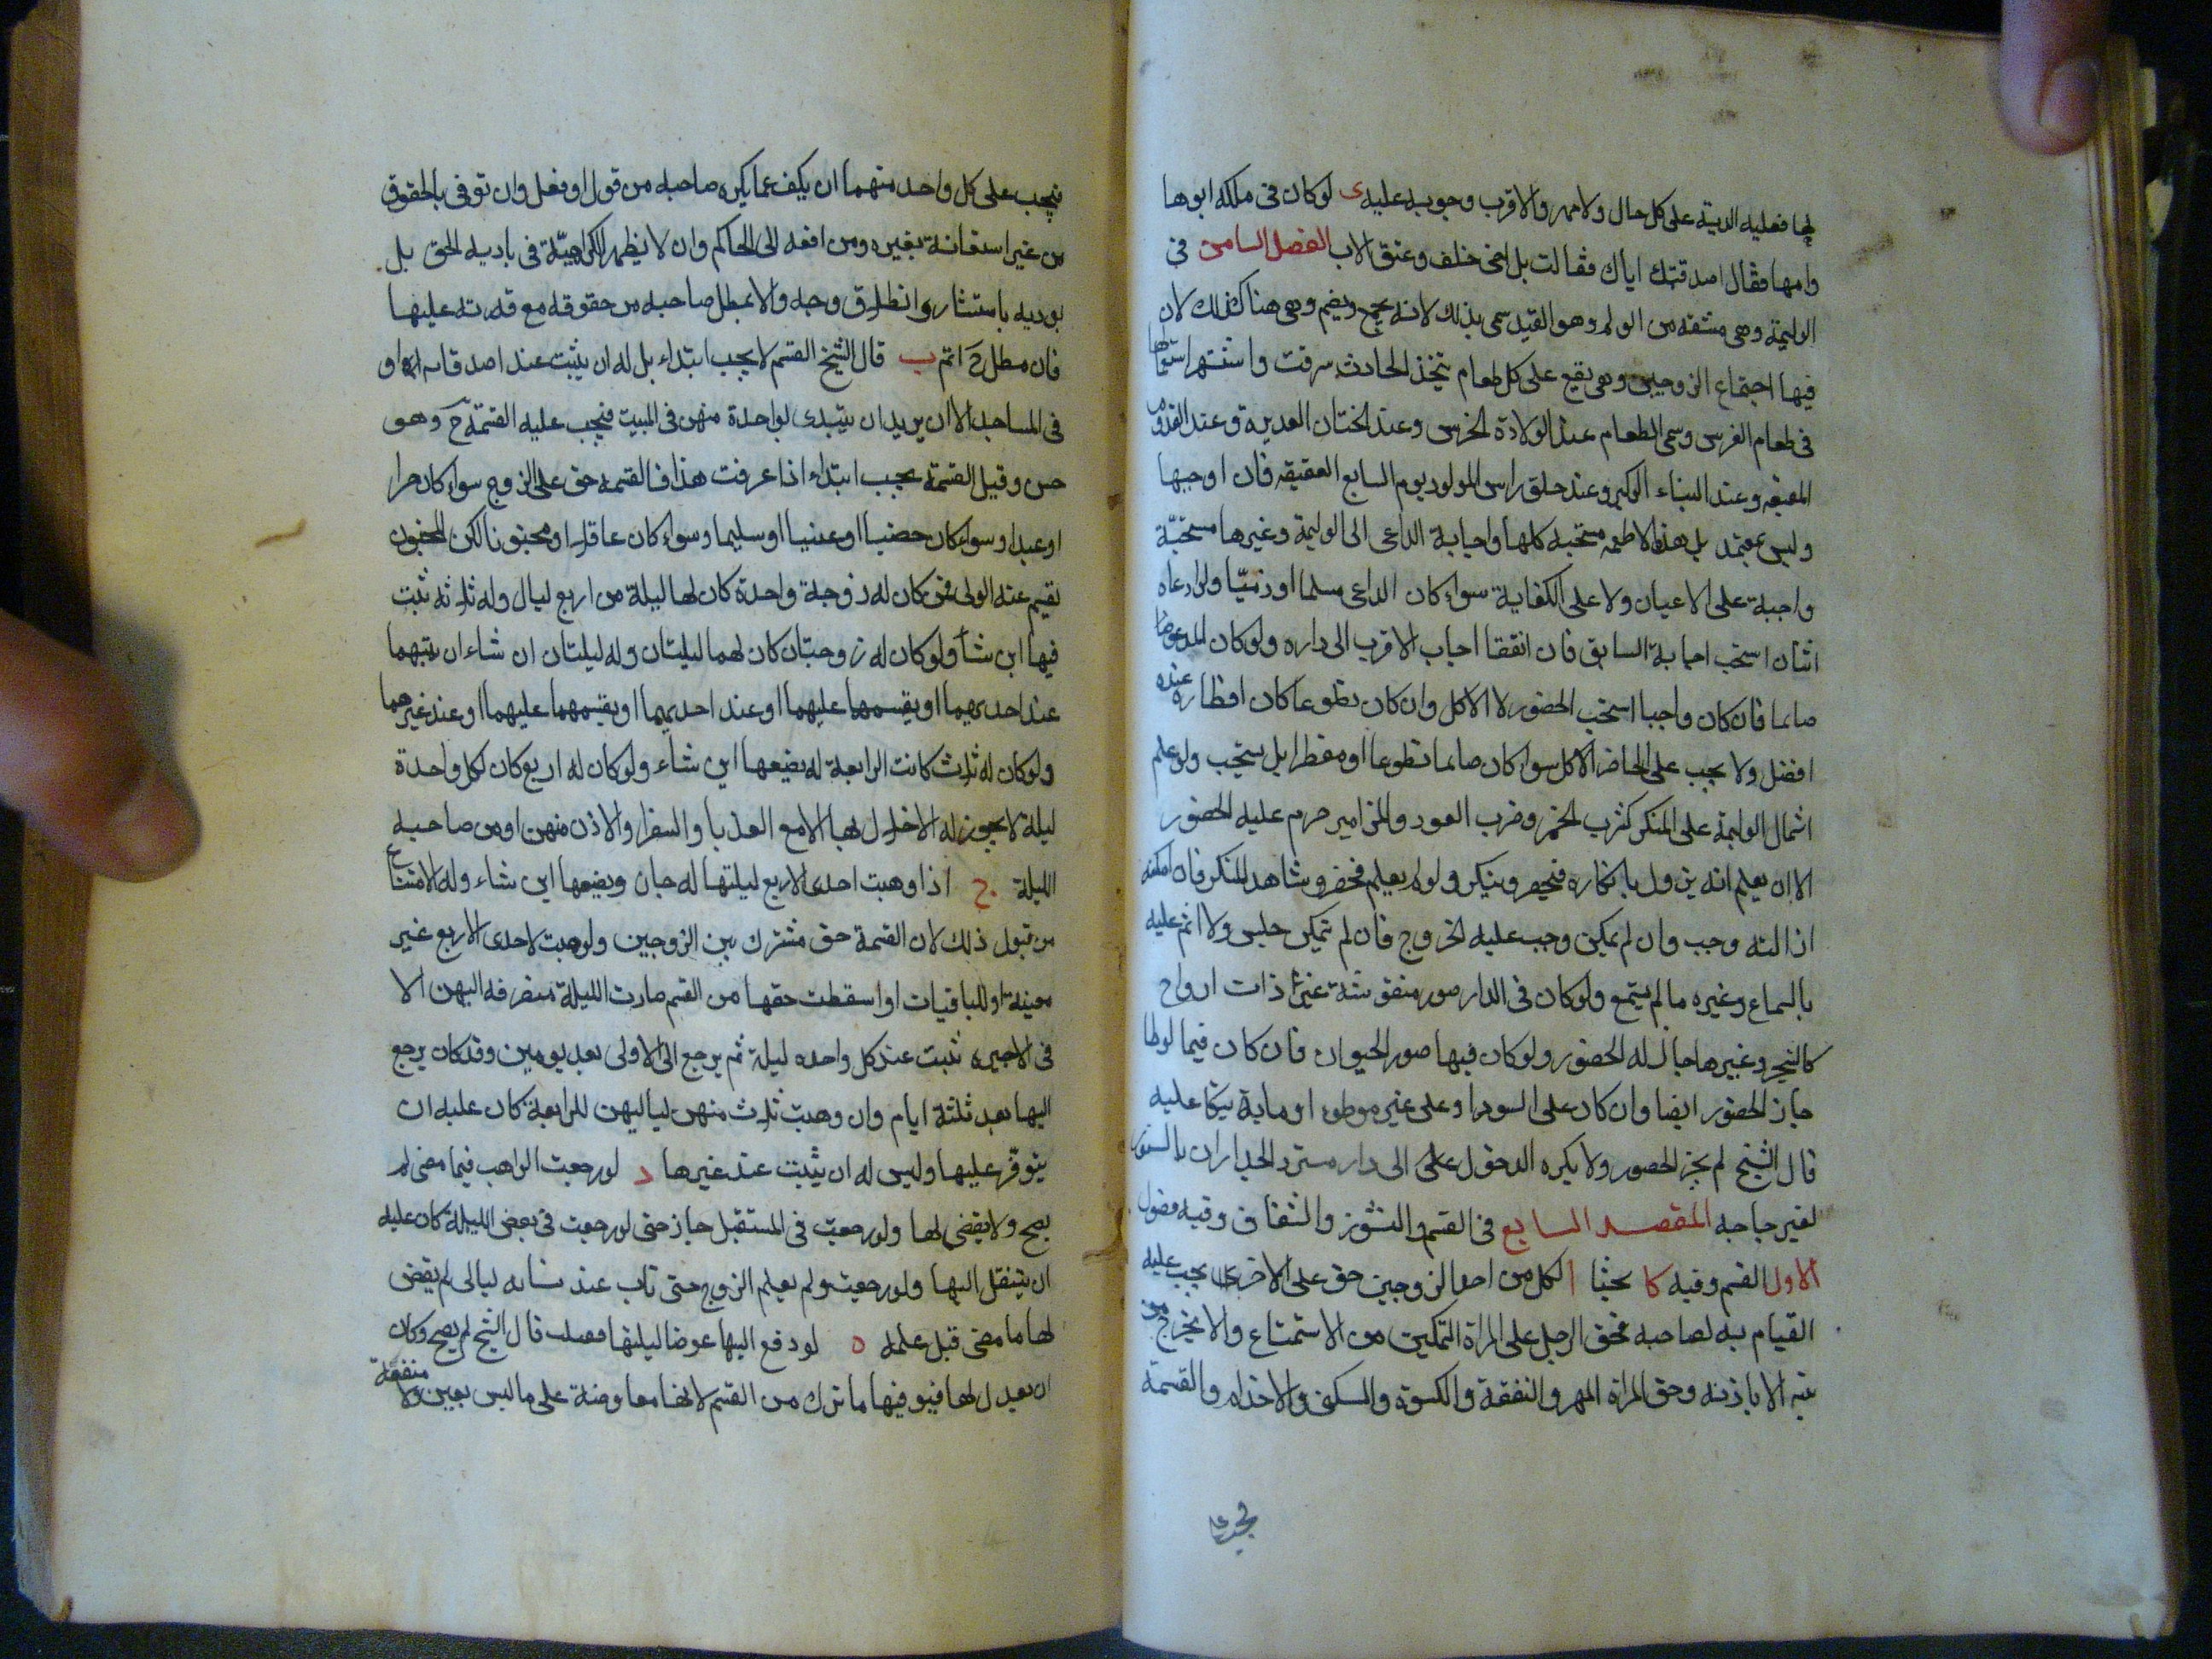 لها فعليه الدية على كل حال ولا مهر والاقرب وجوبه عليه ى لو كان فى ملكه ابوها
وامها فقال اصدقتك اياك فقالت بل امى خلف وعتق الاب الفصل السامن فى
الوليمة وهى مشتقه من الولم وهو القيد سمى بذلك لانه يجمع ويضم وهى هنا كذلك لان
فيها اجتماع الزوجين وهى تقع على كل طعام يتخذ لحادث سرقت واشتهر استعمالها
فى طعام العرس وسمى الطعام عند الولادة الخرس وعند الختان العذيرة وعند القدوم
النقيعه وعند البناء الوكير وعند حلق راس المولود يوم السابع العقيقه فان اوجبها
وليس بمعتمد بل هذه الاطعمه مستحبه كلها واجابة الداعى الى الوليمة وغيرها مستحبّة
واجبة على الاعيان ولا على الكفاية سواء كان الداعى مسلما او ذميّا ولو دعاه
اثنان استحب اجابة السابق فان اتفقا اجاب الاقرب الى داره ولو كان المدعو
صايما فان كان واجبا استحب الحضور لا الاكل وان كان تطوعا كان افطاره عنده
افضل ولا يجب على الحاضر الاكل سواء كان صايما تطوعا او مفطرا بل يستحب ولو علم
اشمال الوليمة على المنكر كشرب الخمر وضرب العود والمزامير حرم عليه الحضور
الا ان يعلم انه يزول بانكاره فيحضر وينكر ولو لم يعلم فحضر وشاهد المنكر فان امكنه
ازالته وجب وان لم يمكن وجب عليه الخروج فان لم يتمكن جلس ولا اثم عليه
بالسماع وغيره ما لم يستمع ولو كان فى الدار صور منقوشة غير ذات ارواح
كالشجر وغيرها جاز له الحضور ولو كان فيها صور الحيوان فان كان فيما يوطا
جاز الحضور ايضا وان كان على الستور او على غير موطوء او مايدة يتكا عليه
قال الشيخ لم يجز الحضور ولا يكره الدخول على الى دار مسترة الجداران بالستور
لغير حاجه المقصد السابع فى القسم والنشوز والشقاق وفيه فصول
الاول القسم وفيه كا بحثا ا لكل من احد الزوجين حق على الاخر يجب عليه
القيام به لصاحبه فحق الرجل على المراة التمكين من الاستمتاع والا تخرج من
بيته الا باذنه وحق المراة المهر والنفقة والكسوة والسكنى والاخدام والقسمة
فيجب
فيجب على كل واحد منهما ان يكف عما يكره صاحبه من قول او فعل وان توفى بالحقوق
من غير استعانة بغيره ومن افعه الى الحاكم وان لا يظهر الكراهيّة فى تاديه الحق بل
يوديه باستبشار وانطلاق وجه ولا يمطل صاحبه من حقوقه مع قدرته عليها
فان مطل ح اثم ب قال الشيخ القسم لا يجب ابتداء بل له ان يثبت عند اصدقائه او
فى المساجد الا ان يريد ان يبتدى بواحدة منهن فى المبيت فيجب عليه القسمة ح وهو
حسن وقيل القسمة يجب ابتداء اذا عرفت هذا فالقسمة حق على الزوج سواء كان حرا
او عبدا وسواء كان خصيا او عنينا او سليما وسواء كان عاقلا او مجنونا لكن المجنون
يقيم عنه الولى فمن كان له زوجة واحدة كان لها ليلة من اربع ليال وله ثلاثه ثبت
فيها اين شاء ولو كان له زوجتان كان لهما ليلتان وله ليلتان ان شاء ان يبيتهما
عند احديهما او يقسمهما عليهما او عند احديهما او يقيمهما عليهما او عند غيرهما
ولو كان له ثلاث كانت الرابعة له يضعها اين شاء ولو كان له اربع كان لكل واحدة
ليلة لا يجوز له الاخلال بها الا مع العذر او السفر او الاذن منهن او من صاحبه
الليلة ج اذا وهبت احدى الاربع ليلتها له جاز ويضعها اين شاء وله الامتناع
من قبول ذلك لان القسمة حق مشترك بين الزوجين ولو وهبت لاحدى الاربع غير
معينة او للباقيات او اسقطت حقها من القسم صارت الليلة منصرفه اليهن الا
فى الاخيره ثبت عند كل واحده ليلة ثم يرجع الى الاولى بعد يومين وقد كان يرجع
اليها بعد ثلثة ايام وان وهبت ثلاث منهن لياليهن للرابعة كان عليه ان
يتوفر عليها وليس له ان يثبت عند غيرها د لو رجعت الواهب فيما مضى لم
يصح ولا يقضى لها ولو رجعت فى المستقبل جاز حتى لو رجعت فى بعض الليلة كان عليه
ان ينتقل اليها ولو رجعت ولم يعلم الزوج حتى بات عند نسائه ليالى لم يقض
لها ما مضى قبل علمه ه لو دفع اليها عوضا ليلتها فقبلت قال الشيخ لم يصح وكان
ان يعدل لها فيوفيها ما ترك من القسم لانها معاوضة على ما ليس بعين ولا منفعة